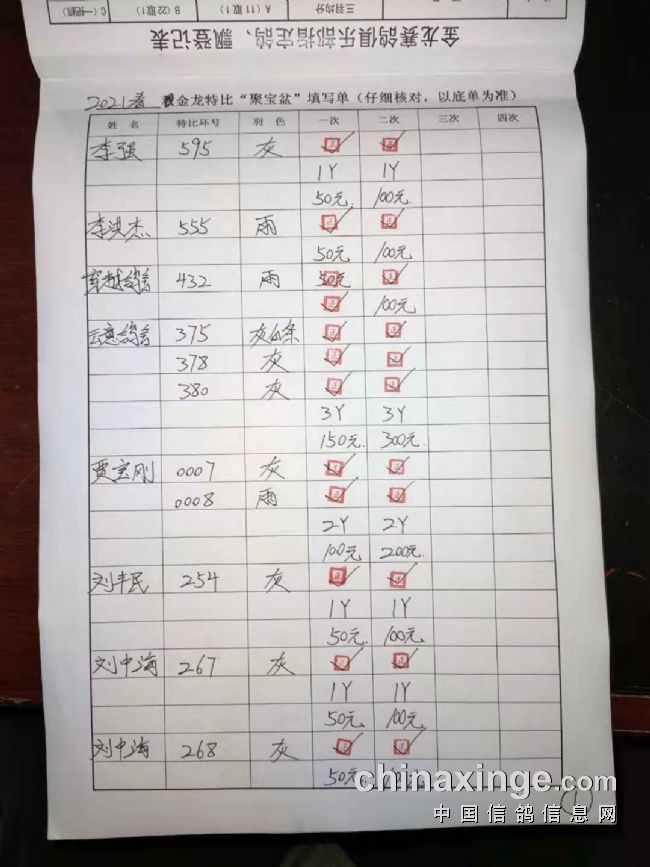 金龙赛鸽俱乐部指定鸽、飘登记表
三羽均分 A (11取1) B (22取1)
2021春 金龙特比“聚宝盆”填写单（仔细核对，以底单为准）
姓 名 特比环号 羽 色 一次 二次 三次 四次
李强 595 灰 正 正
1Y 1Y
50元 100元
李洪杰 555 雨 正 正
50元 100元
432 雨 50元 正
正 100元
375 正 正
378 灰 正 正
380 灰 正 正
3Y 3Y
150元 300元
贾宝刚 0007 灰 正 正
0008 雨 正 正
2Y 2Y
100元 200元
刘丰民 254 灰 正 正
1Y 1Y
50元 100元
刘中海 267 灰 正 正
1Y 1Y
50元 100元
刘中海 268 灰 正 正
50元
chinaxinge.com
中国信鸽信息网
1